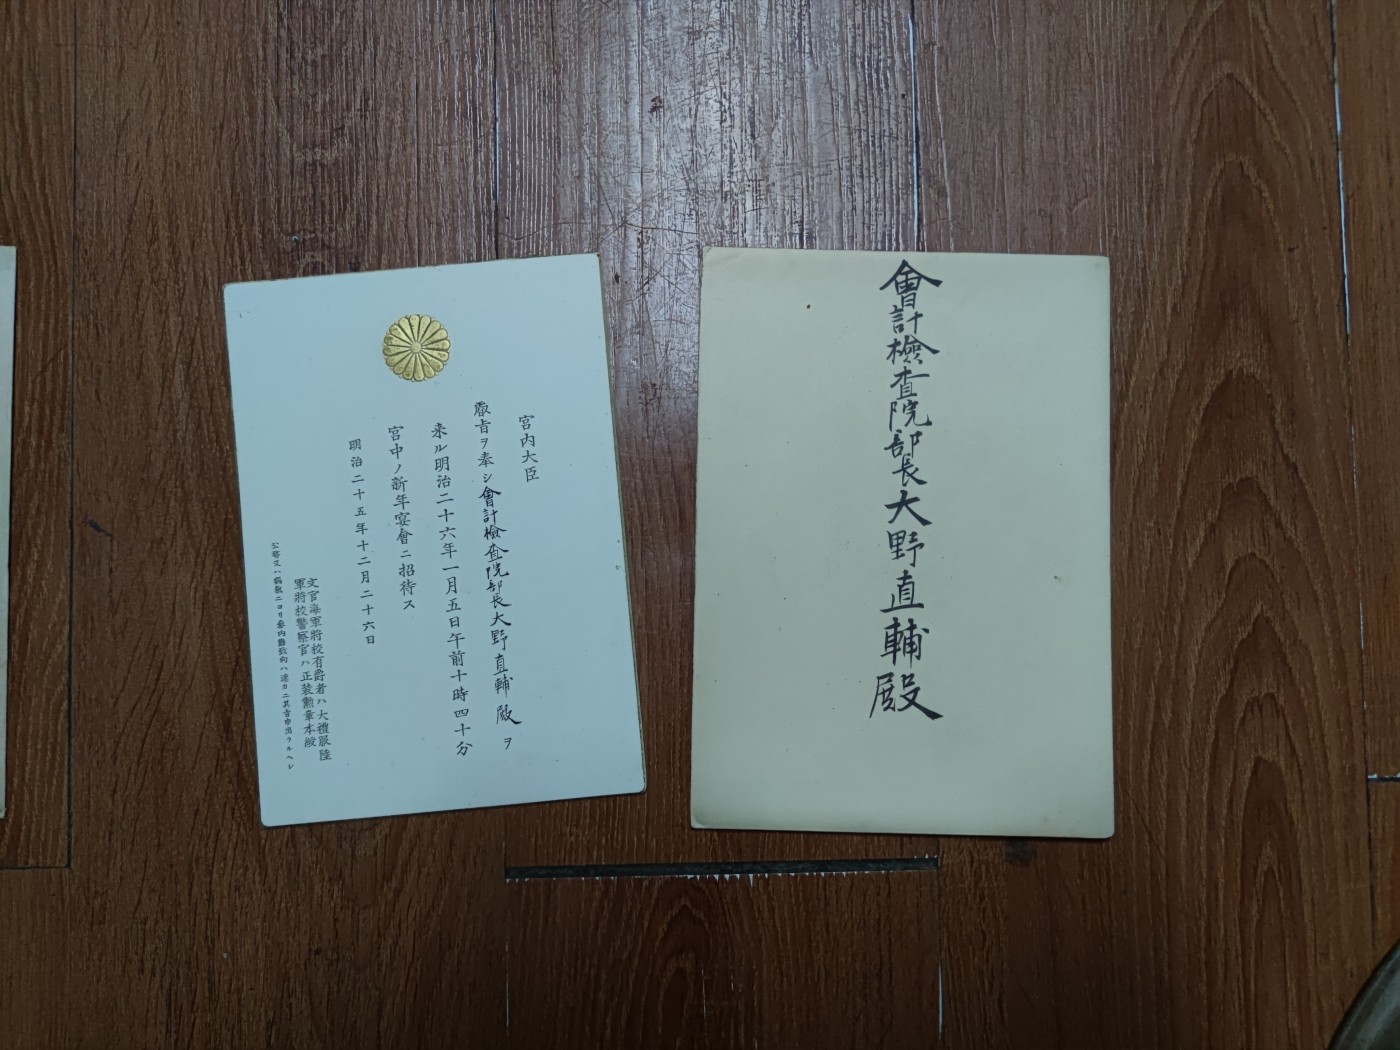 宮内大臣
叡旨ヲ奉シ會計檢査院部長大野直輔殿ヲ
来ル明治二十六年一月五日午前十時四十分
宮中ノ新年宴會ニ招待ス
明治二十五年十二月二十六日
文官海軍將校有爵者ハ大禮服陸
軍將校警察官ハ正装勲章本綬
公務又ハ病氣ニヨリ参内難致向ハ速カニ其旨申出ラルヘシ
會計檢査院部長大野直輔殿